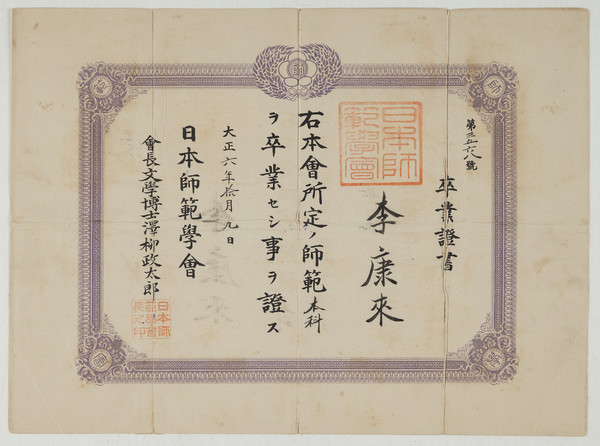 卒業證書
李康來
右本會所定ノ師範本科
ヲ卒業セシ事ヲ證ス
大正六年拾月九日
日本師範學會
會長文學博士澤柳政太郎
日本師範學會
日本師範學會長之印